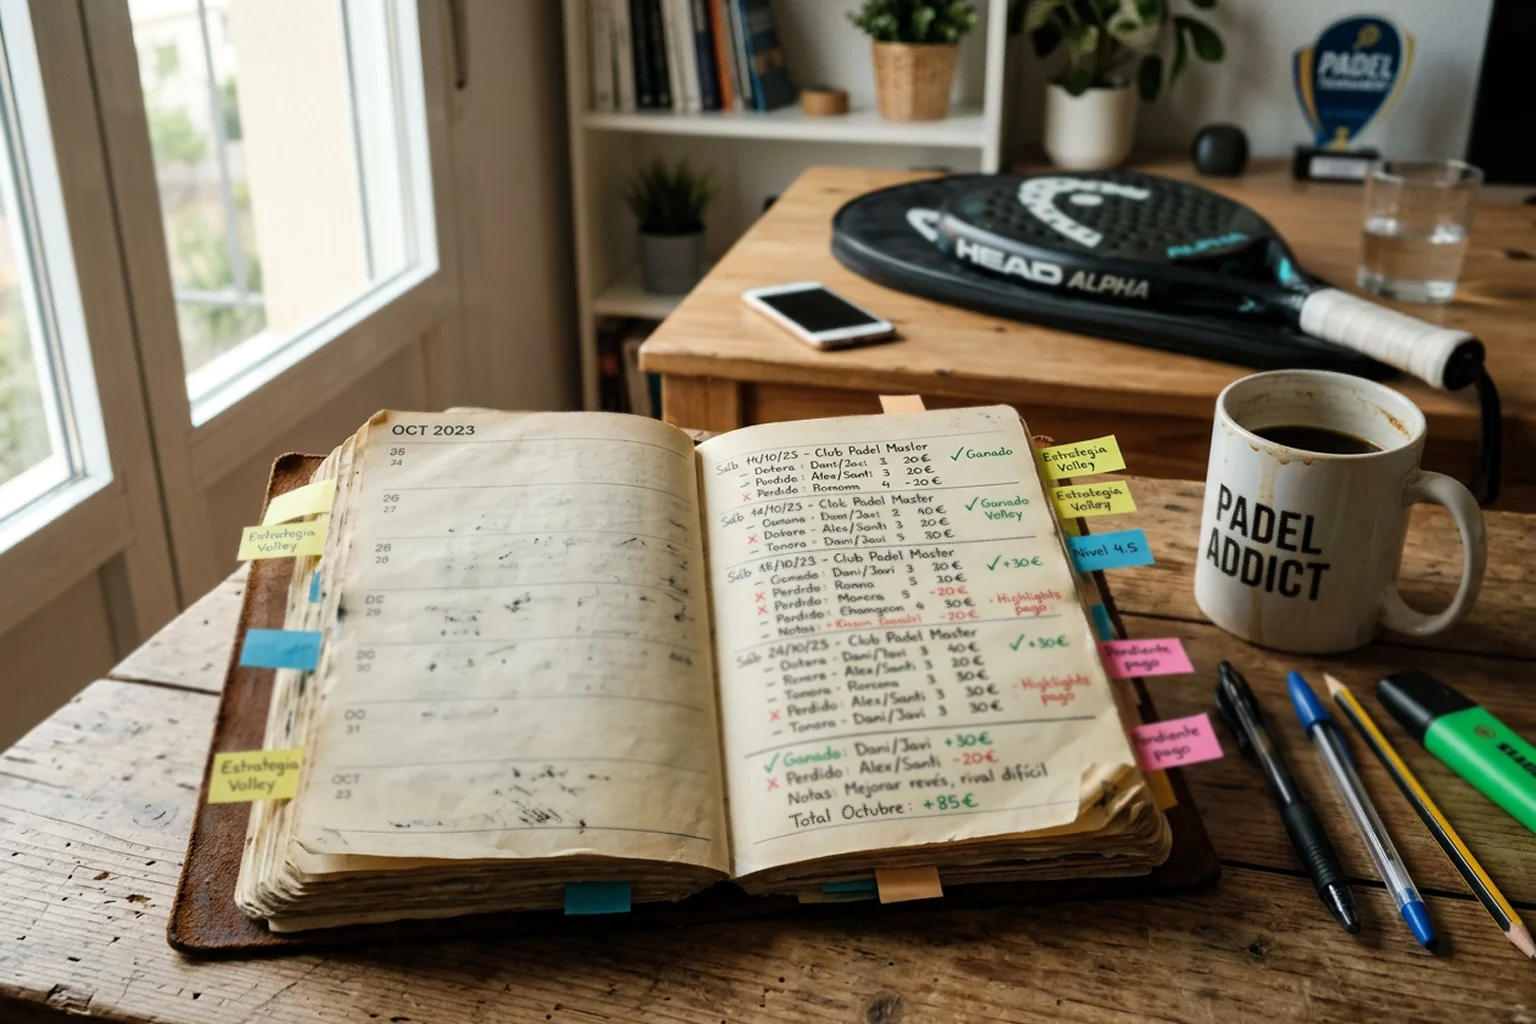 PADEL
HEAD ALPHA
ALPHA
PADEL
ADDICT
OCT 2023
35
34
26
27
26
28
29
30
31
OCT
23
Estrategia
Volley
Estrategia
Volley
- Club Padel Master
- Dotora : Dani/Javi 3 20€
- Perdido : Alex/Santi 3 20€
x Perdido : Romoma 4 -20€
✓ Ganado
Sáb 14/10/25 - Club Padel Master
- Dani/Javi 2 40€
x Dotora - Alex/Santi 3 20€
- Tonora - Dani/Javi 5 30€
✓ Ganado
Volley
Sáb 18/10/23 - Club Padel Master
Dani/Javi 3 30€
x Perdrdo : Ronna 5 30€
x Perdido : Morera 5 -20€
- Perdido : Chamgeon 4 30€
- Notas : -20€
✓ +30€
- Highlights
pago
Sáb 24/10/25 - Club Padel Master
- Dotora - Dani/Javi 3 40€
- Renera - Alex/Santi 3 20€
- Tonora - Rorcena 3 30€
x Perdido : Alex/Santi 3 30€
- Tonora - Dani/Javi 3 30€
✓ +30€
- Highlights
pago
✓ Ganado : Dani/Javi +30€
x Perdido : Alex/Santi -20€
Notas: Mejorar revés, rival difícil
Total Octubre : +85€
Estrategia
Volley
Estrategia
Nivel 4.5
Pendiente
pago
Pendiente
pago